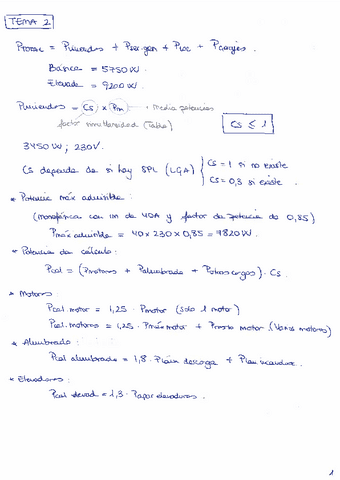 TEMA 2
Ptotal = Pviviendas + Pser.gen + Ploc + Pgarajes.
Básica = 5750W.
Elevada = 9200W.
Pviviendas = Cs × Pm → media potencias
factor simultaneidad (Tabla)
Cs ≤ 1
3450W; 230V.
Cs depende de si hay SPL (LGA)
Cs = 1 si no existe
Cs = 0,3 si existe.
* Potencia máx admisible:
(monofásica con IM de 40A y factor de potencia de 0,85)
Pmáx admisible = 40 × 230 × 0,85 = 7820W.
* Potencia de cálculo:
Pcal = (Pmotores + Palumbrado + Potras cargas) · Cs.
* Motores
Pcal. motor = 1,25 · Pmotor (solo 1 motor)
Pcal. motores = 1,25 · Pmáx motor + Presto motor. (Varios motores)
* Alumbrado:
Pcal alumbrado = 1,8 · Plám descarga + Plám incandesc.
* Elevadores:
Pcal elevad = 1,3 · Papar elevadores.
1